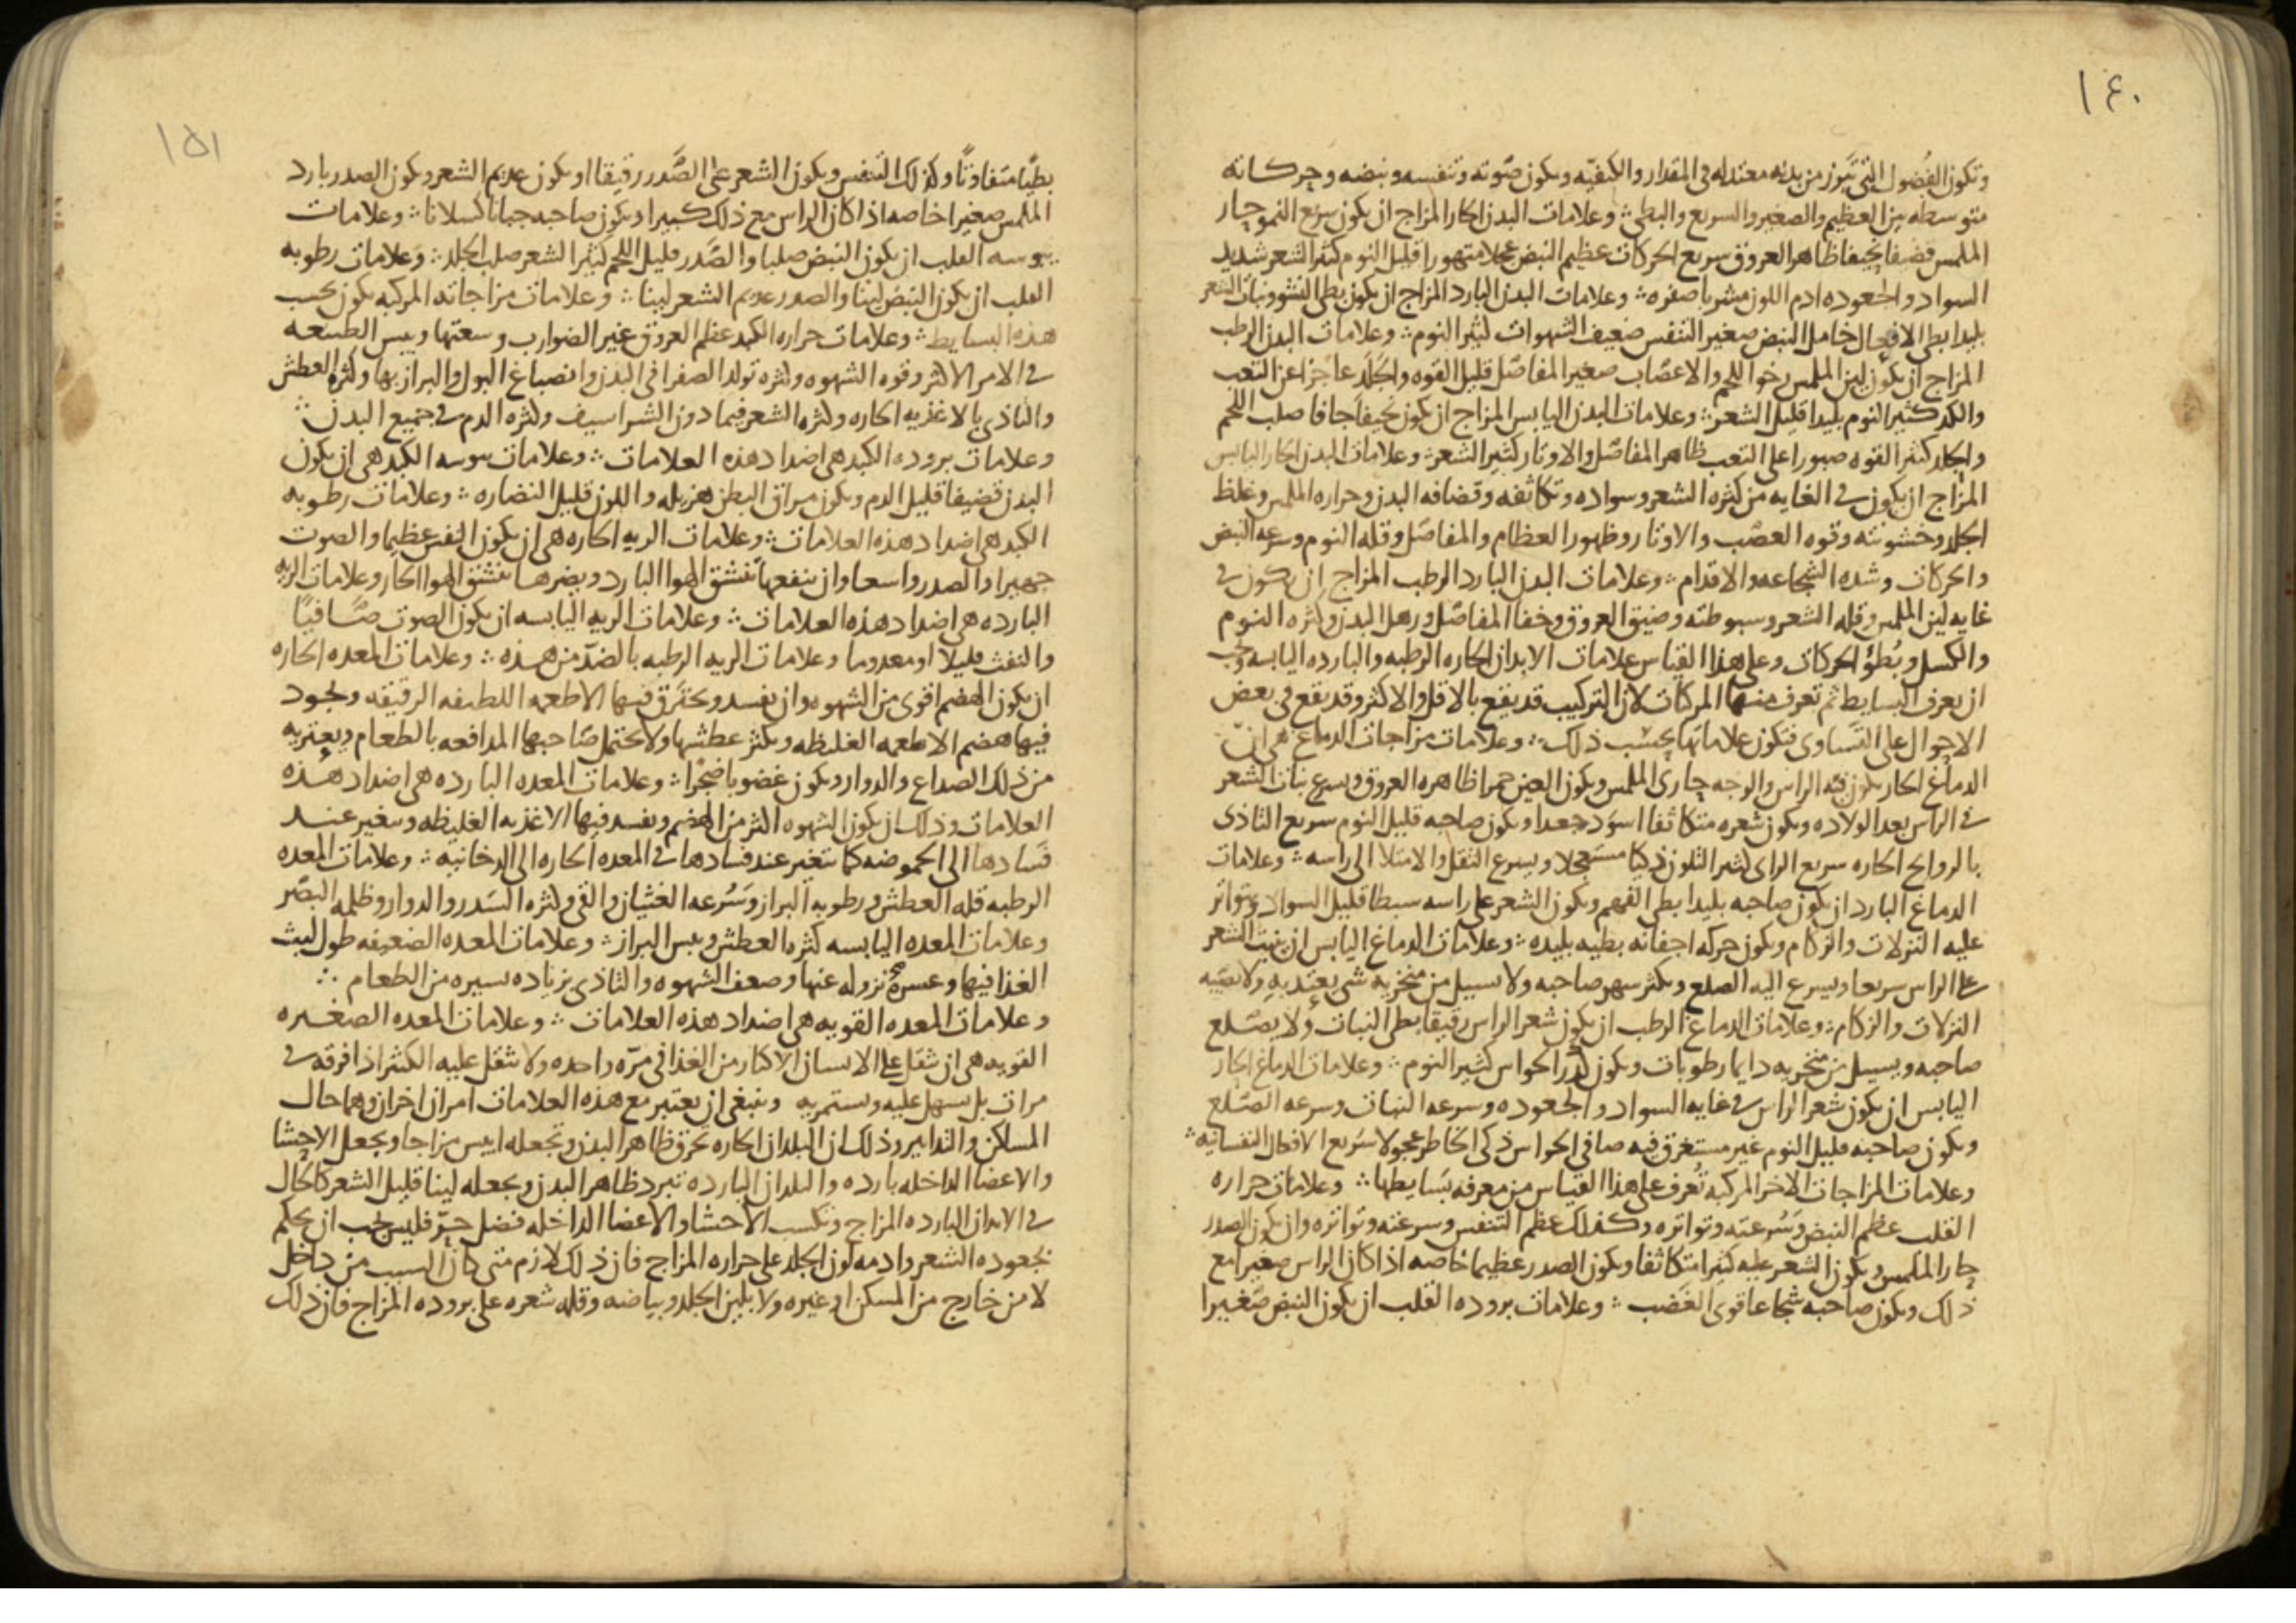 ١٤٠
وتكون الفضول التي تبرز من بدنه معتدله في المقدار والكيفيه ويكون صوته وتنفسه ونبضه وحركاته
متوسطه بين العظيم والصغير والسريع والبطي ؞ وعلامات البدن الحار المزاج ان يكون سريع النمو حار
الملمس قضيفا نحيفا ظاهر العروق سريع الحركات عظيم النبض عجلا متهورا قليل النوم كثير الشعر شديد
السواد والجعوده ادم اللون مشربا صفره ؞ وعلامات البدن البارد المزاج ان يكون بطي النشو ونبات الشعر
بليدا بطي الافعال خامل النبض صغير التنفس ضعيف الشهوات كثير النوم ؞ وعلامات البدن الرطب
المزاج ان يكون لين الملمس رخو اللحم والاعصاب صغير المفاصل قليل القوه والجلد عاجزا عن التعب
والكد كثير النوم بليدا قليل الشعر ؞ وعلامات البدن اليابس المزاج ان يكون نحيفا جافا صلب اللحم
والجلد كثير القوه صبورا على التعب ظاهر المفاصل والاوتار كثير الشعر ؞ وعلامات البدن الحار اليابس
المزاج ان يكون في الغايه من كثره الشعر وسواده وتكاثفه وقضافه البدن وحراره الملمس وغلظ
الجلد وخشونته وقوه العصب والاوتار وظهور العظام والمفاصل وقله النوم وسرعه النبض
والحركات وشده الشجاعه والاقدام ؞ وعلامات البدن البارد الرطب المزاج ان يكون في
غايه لين الملمس وقله الشعر وسبوطته وضيق العروق وخفا المفاصل ورهل البدن وكثره النوم
والكسل وبُطؤ الحركات وعلى هذا القياس علامات الابدان الحاره الرطبه والبارده اليابسه وجب
ان يعرف البسايط ثم تعرف منها المركبات لان التركيب قد يقع بالاقل والاكثر وقد يقع في بعض
الاحوال على التساوى فتكون علاماتها بحسب ذلك ؞ وعلامات مزاجات الدماغ هي ان
الدماغ الحار يكون فيه الراس والوجه حاري الملمس ويكون العين حمرا ظاهره العروق ويسرع نبات الشعر
في الراس بعد الولاده ويكون شعره متكاثفا اسود جعدا ويكون صاحبه قليل النوم سريع التاذى
بالروايح الحاره سريع الراى كثير التلون ذكيا مستعجلا ويسرع الثقل والامتلا الى راسه ؞ وعلامات
الدماغ البارد ان يكون صاحبه بليدا بطي الفهم ويكون الشعر على راسه سبطا قليل السواد وتتواتر
عليه النزلات والزكام ويكون حركه اجفانه بطيه بليده ؞ وعلامات الدماغ اليابس ان ينبت الشعر
على الراس سريعا ويسرع اليه الصلع ويكثر سهر صاحبه ولا يسيل من منخريه شى يعتد به ولا تصيبه
النزلات والزكام ؞ وعلامات الدماغ الرطب ان يكون شعر الراس رقيقا بطي النبات ولا يصلع
صاحبه ويسيل من منخريه دايما رطوبات ويكون كدر الحواس كثير النوم ؞ وعلامات الدماغ الحار
اليابس ان يكون شعر الراس في غايه السواد والجعوده وسرعه النبات وسرعه الصلع
ويكون صاحبه قليل النوم غير مستغرق فيه صافي الحواس ذكى الخاطر عجولا سريع الافعال النفسانيه ؞
وعلامات المزاجات الاخر المركبه تُعرف على هذا القياس من معرفه بسايطها ؞ وعلامات حراره
القلب عظم النبض وسُرعته وتواتره وكذلك عظم التنفس وسرعته وتواتره وان يكون الصدر
حار الملمس ويكون الشعر عليه كثيرا متكاثفا ويكون الصدر عظيما خاصه اذا كان الراس صغيرا مع
ذلك ويكون صاحبه شجاعا قوى الغضب ؞ وعلامات بروده القلب ان يكون النبض صغيرا
١٥١
بطيا متفاوتًا وكذلك التنفس ويكون الشعر على الصَّدر رقيقا او يكون عديم الشعر ويكون الصدر بارد
الملمس صغيرا خاصه اذا كان الراس مع ذلك كبيرا ويكون صاحبه جبانا كسلانا ؞ وعلامات
يبوسه القلب ان يكون النبض صلبا والصَّدر قليل اللحم كثير الشعر صلب الجلد ؞ وعلامات رطوبه
القلب ان يكون النبض لينا والصدر عديم الشعر لينا ؞ وعلامات مزاجاته المركبه يكون بحسب
هذه البسايط ؞ وعلامات حراره الكبد عظم العروق غير الضوارب وسعتها ويبس الطبيعه
في الامر الاكثر وقوه الشهوه وكثره تولد الصفرا في البدن وانصباغ البول والبراز بها وكثره العطش
والتاذى بالاغذيه الحاره وكثره الشعر فيما دون الشراسيف وكثره الدم في جميع البدن ؞
وعلامات بروده الكبد هي اضداد هذه العلامات ؞ وعلامات يبوسه الكبد هي ان يكون
البدن قضيفا قليل الدم ويكون مراق البطن هزيله واللون قليل النضاره ؞ وعلامات رطوبه
الكبد هي اضداد هذه العلامات ؞ وعلامات الريه الحاره هي ان يكون النفس عظيما والصوت
جهيرا والصدر واسعا وان ينفعها تنشق الهوا البارد ويضرها تنشق الهوا الحار وعلامات الريه
البارده هي اضداد هذه العلامات ؞ وعلامات الريه اليابسه ان يكون الصوت صَافيًا
والنفث قليلا او معدوما وعلامات الريه الرطبه بالضدّ من هذه ؞ وعلامات المعده الحاره
ان يكون الهضم اقوى من الشهوه وان يفسد ويحترق فيها الاطعمه اللطيفه الرقيقه ويجود
فيها هضم الاطعمه الغليظه ويكثر عطشها ولا يحتمل صاحبها المدافعه بالطعام ويعتريه
من ذلك الصداع والدوار ويكون غضوبا ضجرًا ؞ وعلامات المعده البارده هي اضداد هذه
العلامات وذلك ان يكون الشهوه اكثر من الهضم ويفسد فيها الاغذيه الغليظه وتتغير عند
فسادها الى الحموضه كما تتغير عند فسادها في المعده الحاره الى الدخانيه ؞ وعلامات المعده
الرطبه قله العطش ورطوبه البراز وسُرعه الغثيان والقى وكثره السَدر والدوار وظلمه البصر
وعلامات المعده اليابسه كثره العطش ويبس البراز ؞ وعلامات المعده الضعيفه طول لبث
الغذا فيها وعسره نزوله عنها وضعف الشهوه والتاذى بزياده يسيره من الطعام ؞
وعلامات المعده القويه هي اضداد هذه العلامات ؞ وعلامات المعده الصغيره
القويه هي ان يثقل على الانسان الاكثار من الغذا في مرّه واحده ولا يثقل عليه الكثير اذا فرقه في
مرات بل يسهل عليه ويستمريه وينبغى ان يعتبر مع هذه العلامات امران اخران وهما حال
المساكن والتدابير وذلك ان البلدان الحاره تحرق ظاهر البدن وتجعله ايبس مزاجا ويجعل الاحشا
والاعضا الداخله بارده والبلدان البارده تبرد ظاهر البدن ويجعله لينا قليل الشعر كالحال
في الابدان البارده المزاج وتكسب الاحشا والاعضا الداخله فضل حرّ فليس يجب ان يحكم
بجعوده الشعر وادمه لون الجلد على حراره المزاج فان ذلك لازم متى كان السبب من داخل
لا من خارج من المسكن او غيره ولا بلين الجلد وبياضه وقله شعره على بروده المزاج فان ذلك